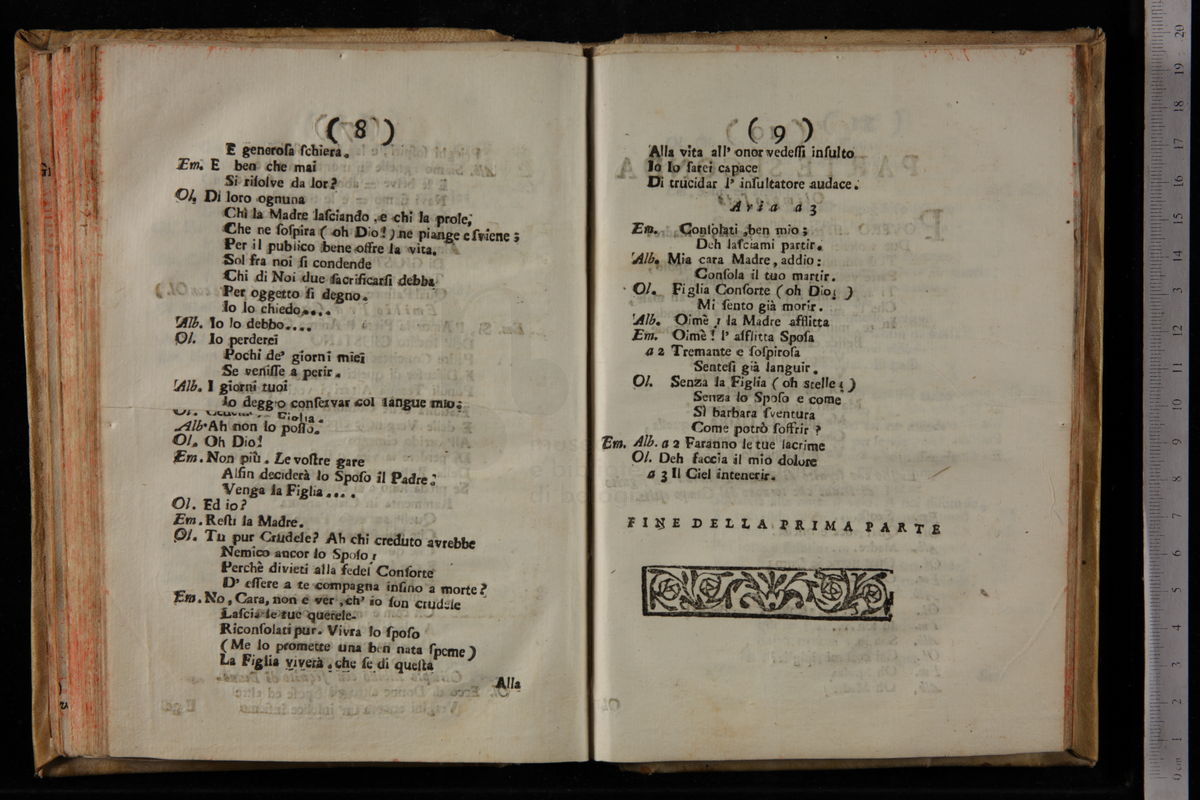 ( 8 )
E generoſa ſchiera.
Em. E ben che mai
Si riſolve da lor?
Ol. Di loro ognuna
Chi la Madre laſciando, e chi la prole,
Che ne ſoſpira ( oh Dio! ) ne piange e ſviene;
Per il publico bene offre la vita.
Sol fra noi ſi condende
Chi di Noi due ſacrificarſi debba
Per oggetto ſi degno.
Io lo chiedo....
Alb. Io lo debbo....
Ol. Io perderei
Pochi de' giorni miei
Se veniſſe a perir.
Alb. I giorni tuoi
Io deggio conſervar col ſangue mio;
Ol. Figlia.
Alb. Ah non lo poſſo.
Ol. Oh Dio!
Em. Non più. Le voſtre gare
Alfin deciderà lo Spoſo il Padre;
Venga la Figlia....
Ol. Ed io?
Em. Reſti la Madre.
Ol. Tu pur Crudele? Ah chi creduto avrebbe
Nemico ancor lo Spoſo;
Perchè divieti alla fedel Conſorte
D' eſſere a te compagna inſino a morte?
Em. No, Cara, non e ver, ch' io ſon crudele
Laſcia le tue querele.
Riconſolati pur. Vivra lo ſpoſo
( Me lo promette una ben nata ſpeme )
La Figlia viverà, che ſe di queſta
Alla
( 9 )
Alla vita all' onor vedeſſi inſulto
Io lo ſarei capace
Di trucidar l' inſultatore audace.
Aria a 3
Em. Conſolati, ben mio;
Deh laſciami partir.
Alb. Mia cara Madre, addio:
Conſola il tuo martir.
Ol. Figlia Conſorte ( oh Dio; )
Mi ſento già morir.
Alb. Oimè, la Madre afflitta
Em. Oimè! l' afflitta Spoſa
a 2 Tremante e ſoſpiroſa
Senteſi già languir.
Ol. Senza la Figlia ( oh stelle; )
Senza lo Spoſo e come
Sì barbara ſventura
Come potrò ſoffrir?
Em. Alb. a 2 Faranno le tue lacrime
Ol. Deh faccia il mio dolore
a 3 Il Ciel intenerir.
FINE DELLA PRIMA PARTE